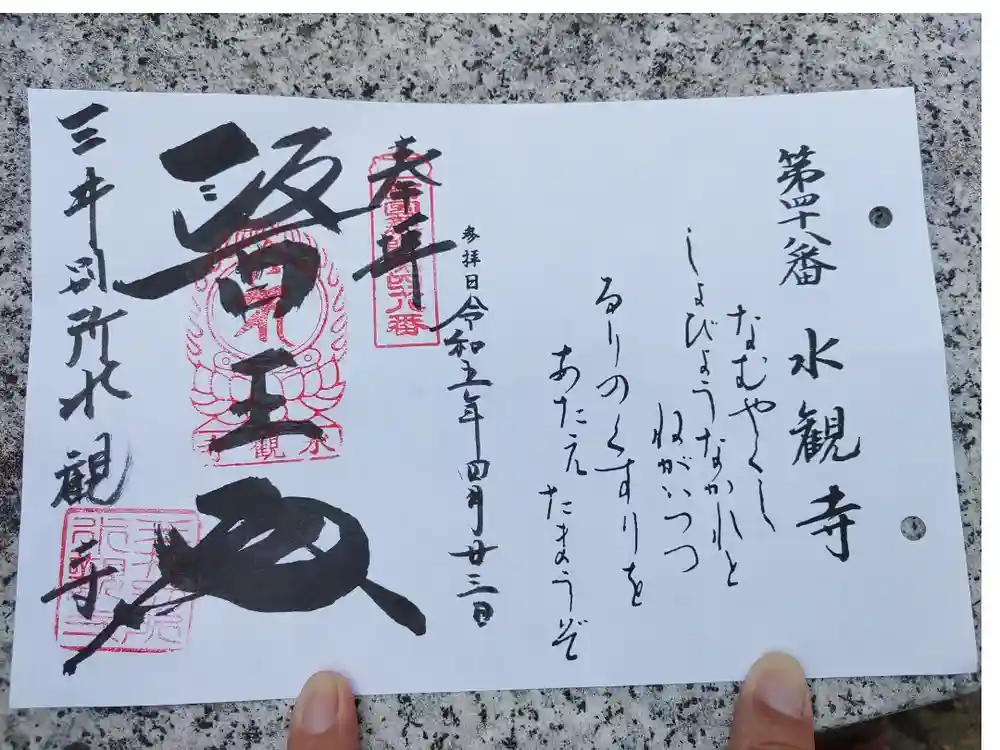 第四十八番 水観寺
なむやくし
しょびょうなかれと
ねがいつつ
るりのくすりを
あたえたまうぞ
参拝日令和五年四月廿三日
奉拝
醫王殿
水観寺
三井別所水観寺